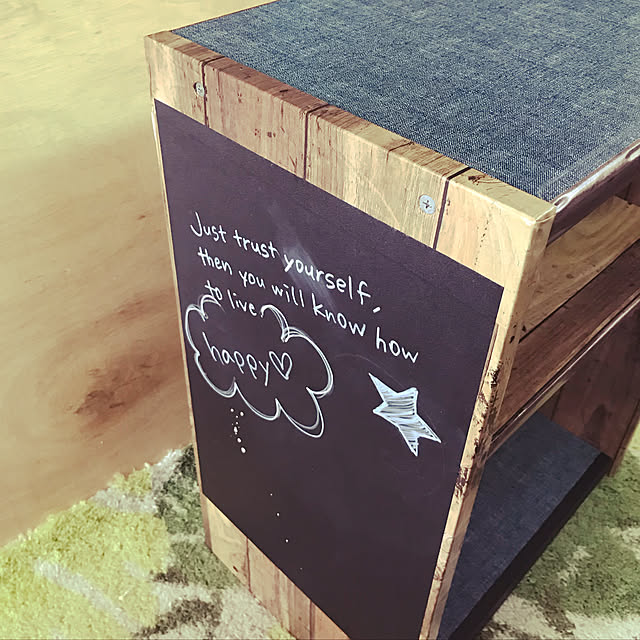 Just trust yourself,
then you will know how
to live
happy♡